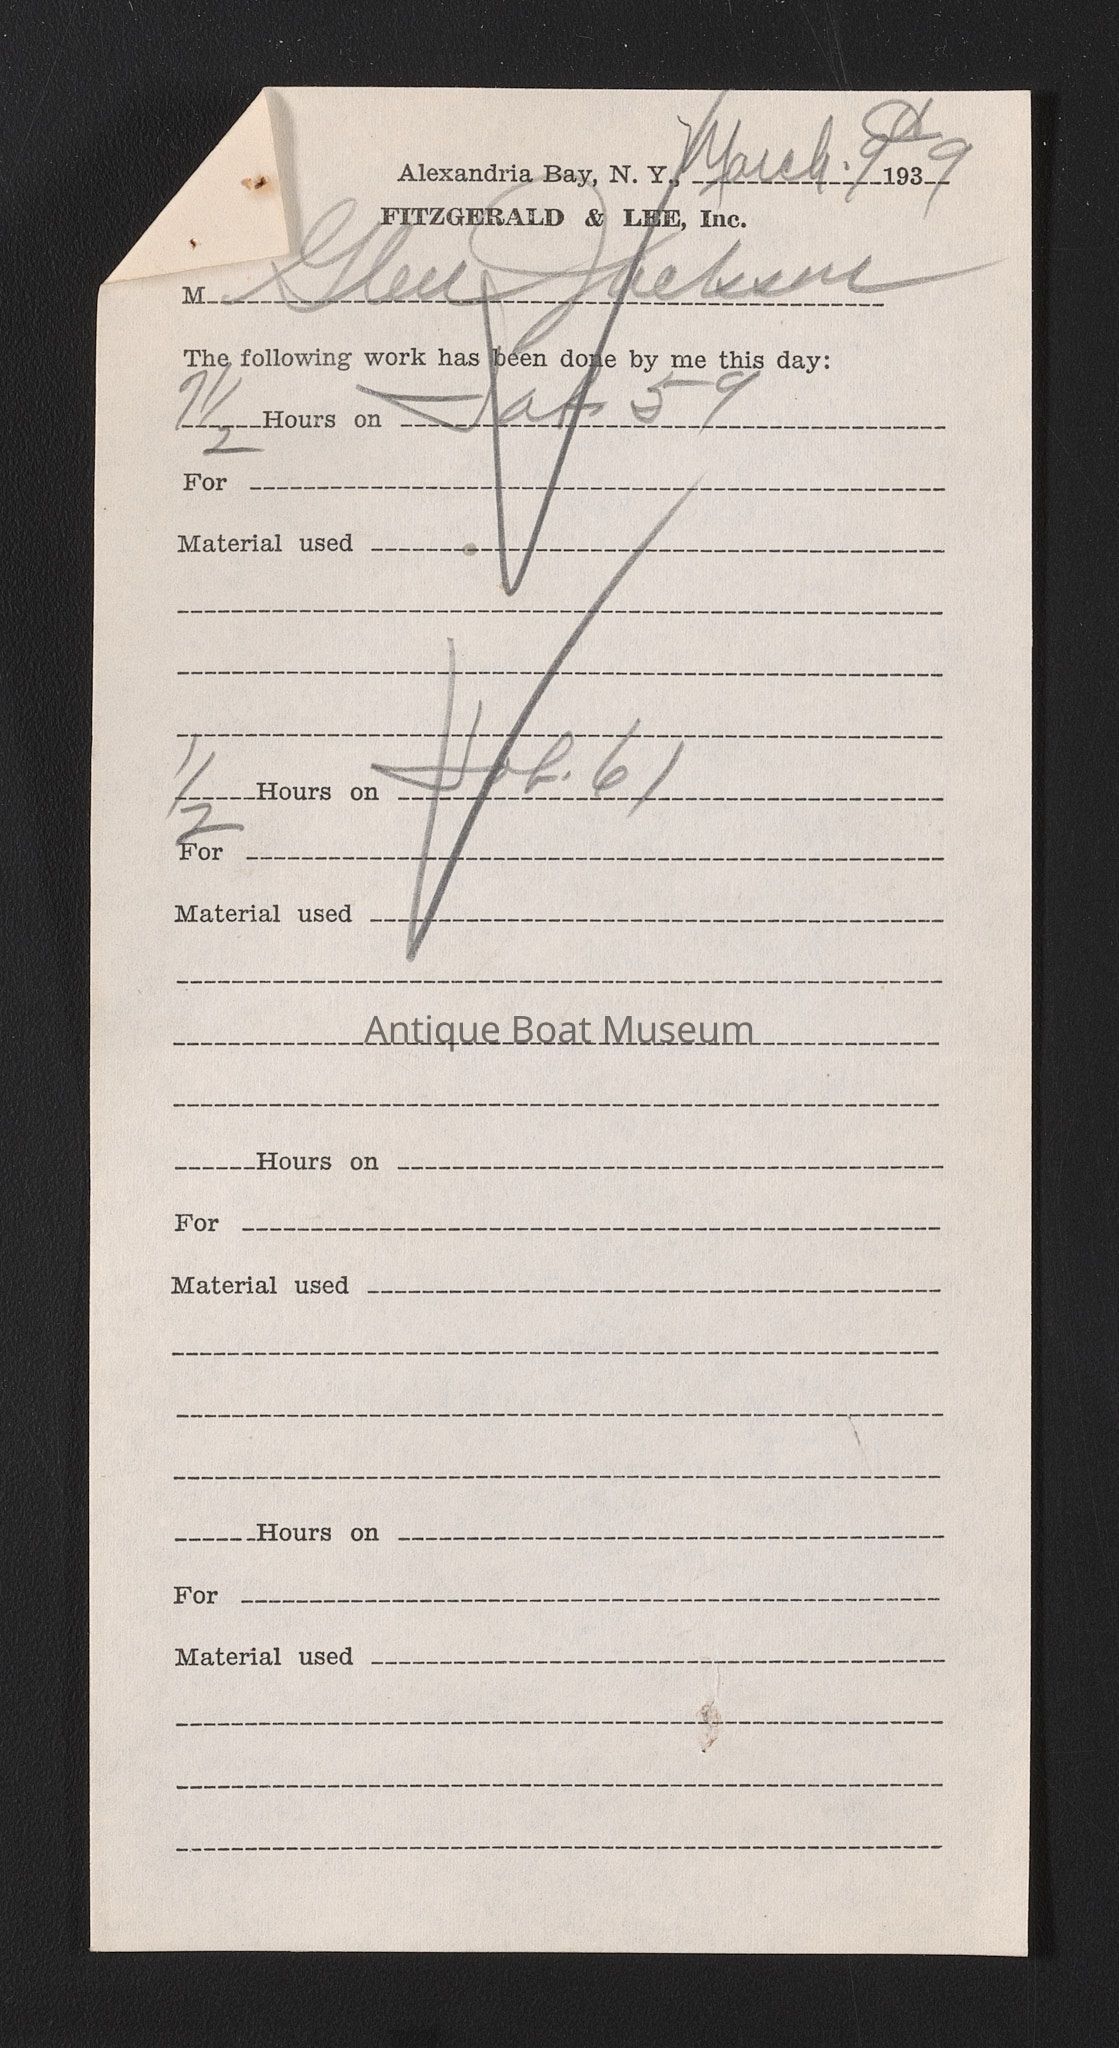 Alexandria Bay, N. Y., March. 9th 1939
FITZGERALD & LEE, Inc.
M Glen Jackson
The following work has been done by me this day:
7 1/2 Hours on Job 59
For
Material used
1/2 Hours on Job. 61
For
Material used
Antique Boat Museum
Hours on
For
Material used
Hours on
For
Material used